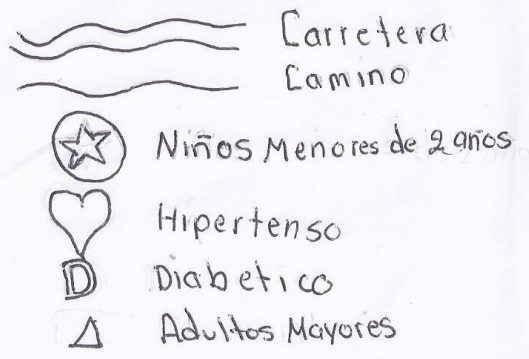 Carretera
Camino
Niños Menores de 2 años
Hipertenso
D Diabetico
Adultos Mayores